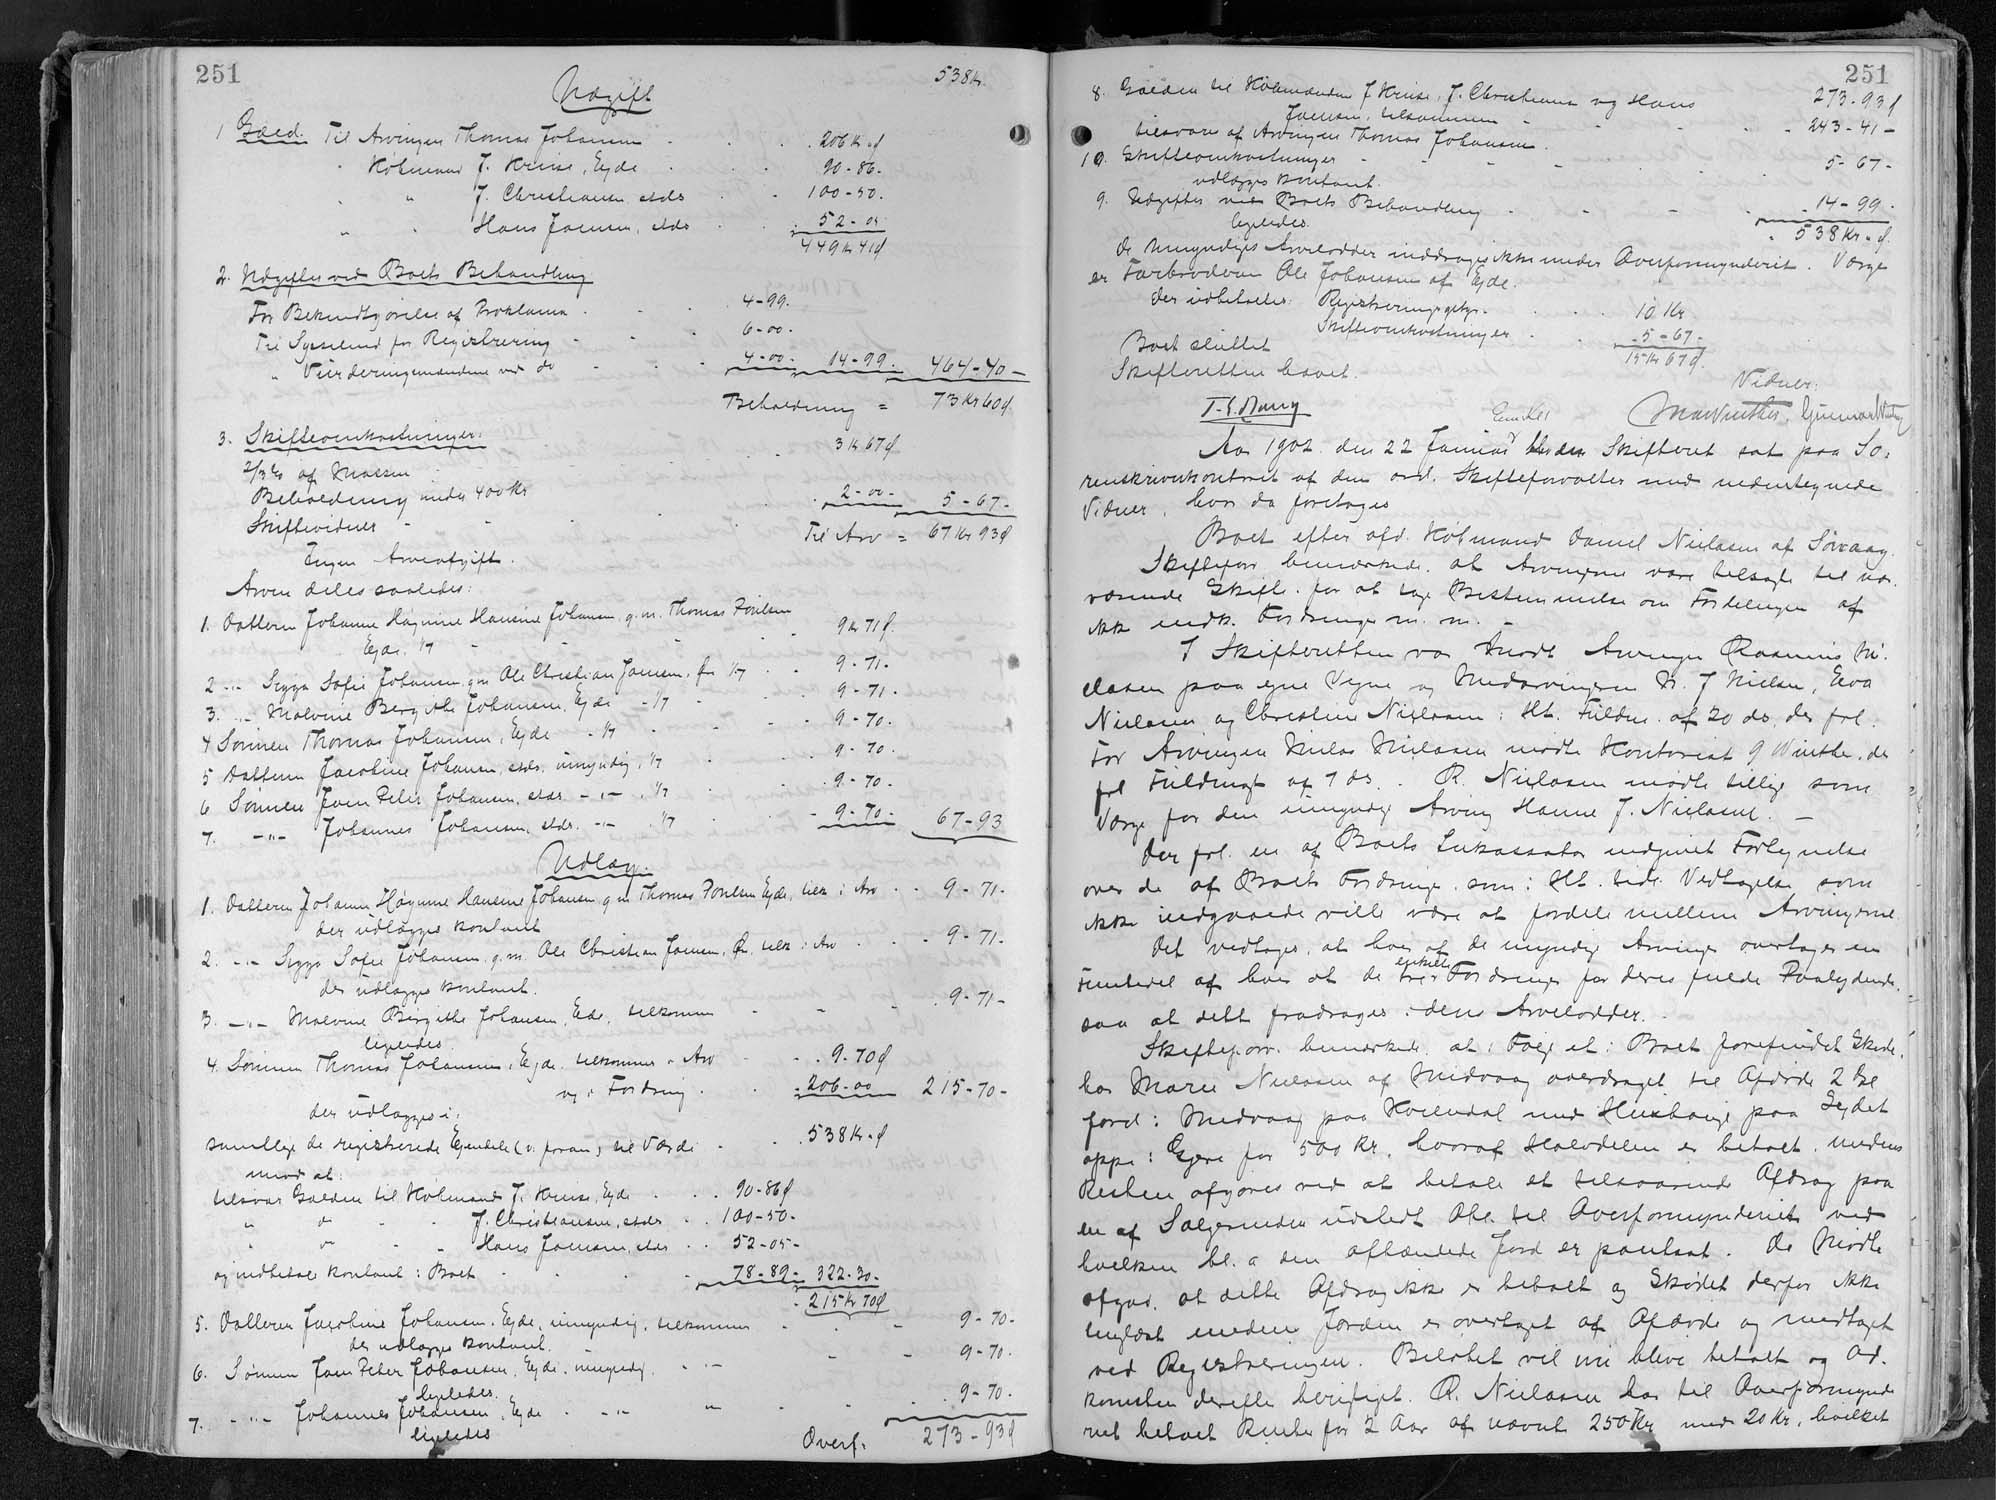 251
538 Kr.
Udgift
1 Gæld. Til Arvingen Thomas Johansen 206 Kr. " ø
" Købmand J. Kruse, Ejde 90-86.
" " J. Christiansen, stds 100-50.
" " Hans Joensen, stds 52-05.
449 Kr 41 ø
2. Udgifter ved Boets Behandling
For Bekendtgørelse af Proklama 4-99.
Til Sysselmd for Registrering 6-00.
" Vurderingsmændene ved do 4-00- 14-99. 464-40-
Beholdning = 73 Kr 60 ø
3. Skifteomkostninger:
2/3 % af Massen 3 Kr 67 ø
Beholdning under 400 Kr
Skiftevidner 2-00- 5-67-
Til Arv = 67 Kr 93 ø
Ingen Arveafgift.
Arven deles saaledes:
1. Datteren Johanne Høgnine Hansine Johansen, g.m. Thomas Poulsen
Ejde. 1/7 9 Kr 71 ø.
2 -"- Sigga Sofie Johansen g.m Ole Christian Joensen, 1/7 9-71-
3. -"- Malvine Bergithe Johansen, Ejde -1/7 9-71-
4 Sønnen Thomas Johansen, Ejde -1/7 9-70-
5 Datteren Jacobine Johansen, stds. umyndig, 1/7 9-70-
6 Sønnen Joen Peter Johansen, stds -"- 1/7 9-70-
7. -"- Johannes Johansen, stds. -"- 1/7 9-70- 67-93
Udlæg.
1. Datteren Johanne Høgnine Hansine Johansen g m Thomas Poulsen Ejde, tilk. i Arv 9-71-
der udlægges kontant
2. -"- Sigga Sofie Johansen g.m. Ole Christian Joensen, tilk. i Arv 9-71-
der udlægges kontant.
3. -"- Malvine Birgithe Johansen, Ejde, tilkommer 9-71-
ligeledes.
4. Sønnen Thomas Johansen, Ejde tilkommer i Arv 9-70 ø
og i Fordring 206-00 215-70-
der udlægges i:
samtlige de registrerede Ejendele (v. foran) til Værdi 538 Kr. " ø
mod at:
tilsvare Gælden til Købmand J. Kruse, Ejde 90-86 ø
" do - - J. Christiansen, stds 100-50-
" do - - Hans Joensen, stds 52-05-
og indbetale kontant i Boet 78-89- 322-30-
215 Kr 70 ø
5. Datteren Jacobine Johansen, Ejde, umyndig, tilkommer 9-70-
der udlægges kontant.
6. Sønnen Joen Peter Johansen, Ejde, umyndig. -"- 9-70-
ligeledes.
7. -"- Johannes Johansen, Ejde -"- " 9-70-
ligeledes
Overf. 273-93 ø
251
273-93 ø
8. Gælden til Købmændene J Kruse, J. Christiansen og Hans
Joensen, tilsammen 243-41-
tilsvares af Arvingen Thomas Johansen.
10. Skifteomkostninger 5-67-
udlægges kontant.
9. Udgifter ved Boets Behandling 14-99-
ligeledes.
538 Kr. " ø.
De umyndiges Arvelodder inddrages ikke under Overformynderiet. Værge
er Farbroderen Ole Johansen af Ejde.
Der udbetales: Registreringsgebyr 10 Kr
Skifteomkostninger 5-67-
15 Kr 67 ø.
Boet sluttet
Skifteretten hævet.
Vidner:
Aar 1902 den 22 Januar blev Skifteret sat paa So-
renskriverkontoret af den ord. Skifteforvalter med nedentegnede
Vidner, hvor da foretoges
Boet efter afd. Købmand Daniel Nielasen af Sørvaag.
Skifteforv bemærkede, at Arvingerne vare tilsagte til nær-
værende Skifte for at tage Bestemmelse om Fordelingen af
ikke indk. Fordringer m. m. -
I Skifteretten var mødt Arvingen Rasmus Ni-
elasen paa egne Vegne og Medarvingerne N. J Nielsen, Elva
Nielasen og Christine Nielasen i Hht. Fuldm. af 20 ds, der frl.
For Arvingen Niclas Nielasen mødte Kontorist Winther, der
frl Fuldmagt af 7 ds. R. Nielasen mødte tillige som
Værge for den umyndig Arving Hanne J. Nielasen. -
Der frl. en af Boets Inkassator indgivet Fortegnelse
over de af Boets Fordringer som i Hht. tidl. Vedtagelse som
ikke indgaaede ville være at fordele mellem Arvingerne.
Det vedtages, at hver af de myndige Arvinger overtager en
Femtedel af hver at de enkelte Fordringer for deres fulde Paalydende,
saa at dett fradrages i deres Arvelodder.
Skifteforv. bemærkede, at i Følge et i Boet forefundet Skøde
har Marie Nielasen af Midvaag overdraget til Afdøde 2 Gl
Jord i Midvaag paa Heiendal med Huushauge paa Gejdet
oppe i Gjere for 500 Kr, hvoraf Halvdelen er betalt, medens
Resten afgøres ved at betale et tilsvarende Afdrag paa
en af Sælgersken udstedt Obl. til Overformynderiet ved
hvilken bl. a den afhændede Jord er pantsat. De Mødte
afgav, at dette Afdrag ikke er betalt og Skødet derfor ikke
tinglæst medens Jorden er overtaget af Afdøde og medtaget
ved Registreringen. Beløbet vil nu blive betalt og Ad-
komsten derefter berigtiget. R. Nielasen har til Overformynde-
riet betalt Renter for 2 Aar af nævnt 250 Kr med 20 Kr, hvilket